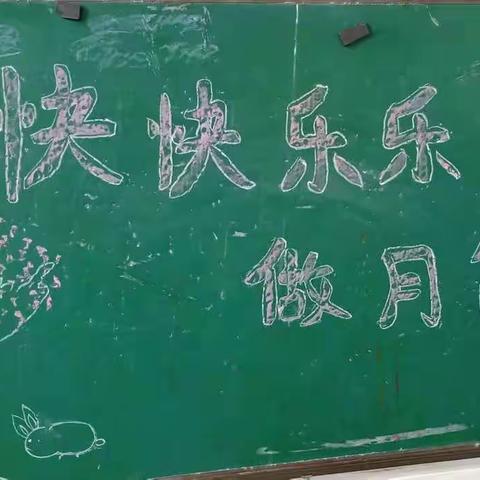 快快乐乐
做月